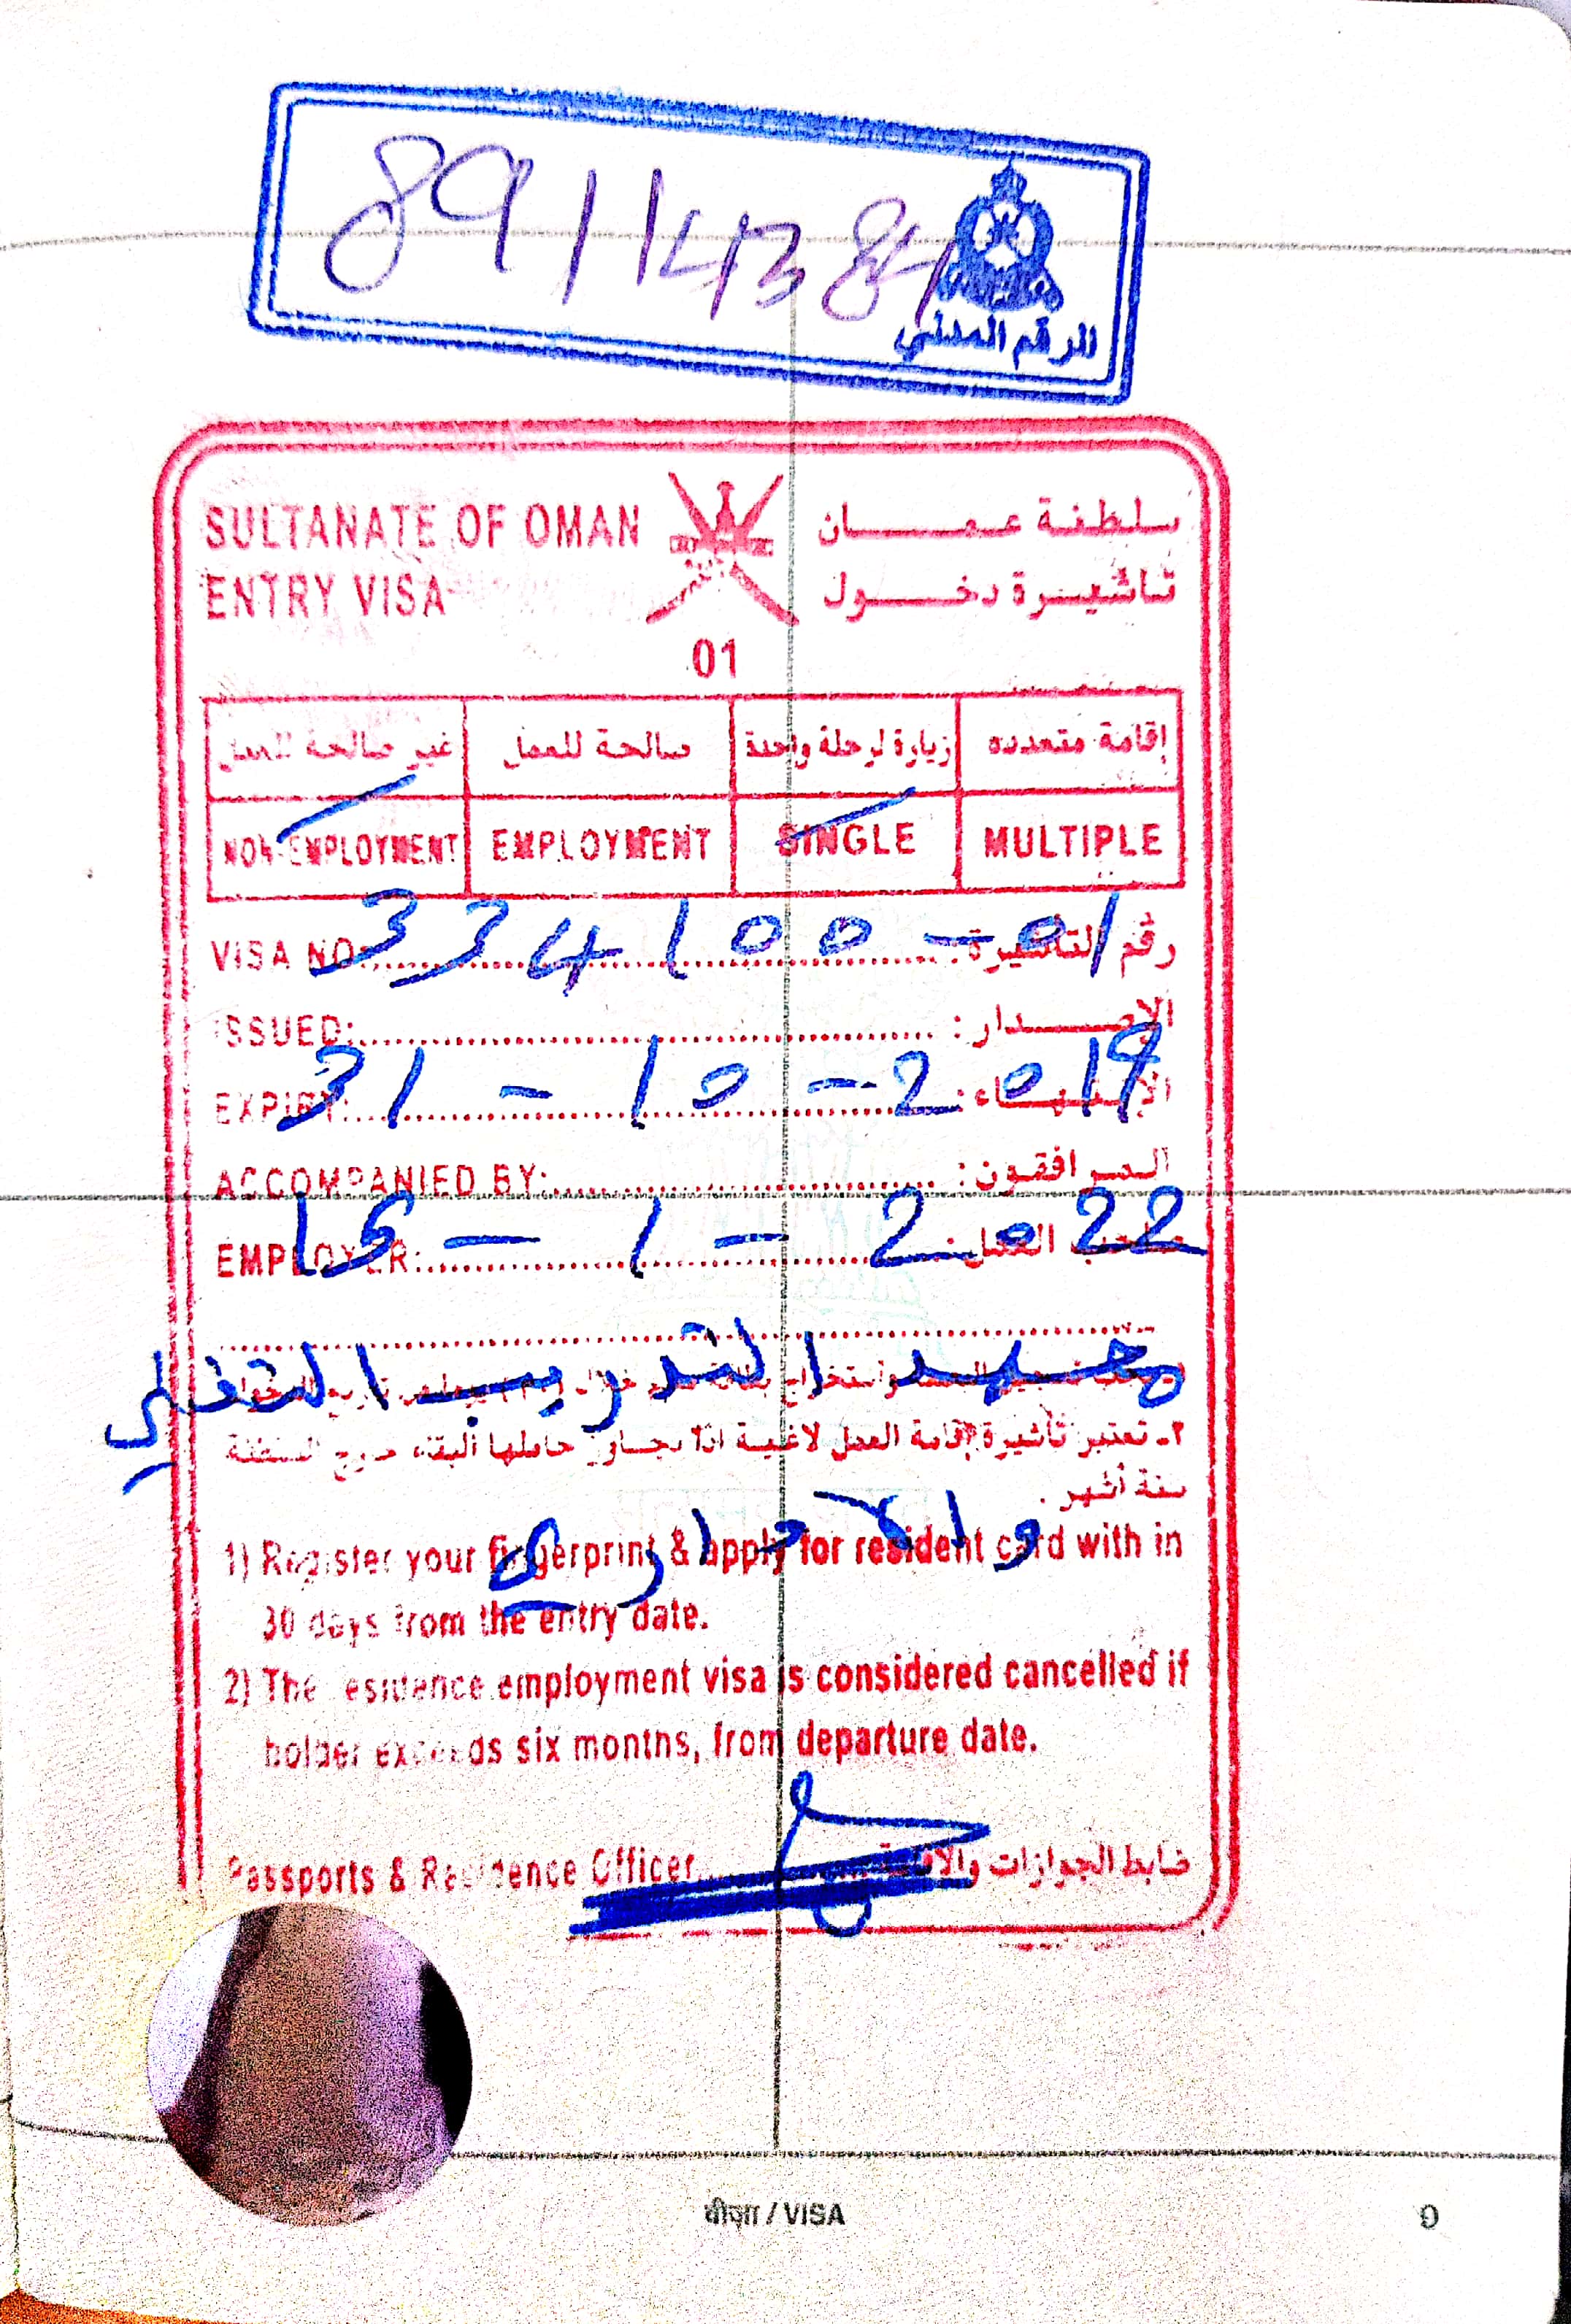 89114384
الرقم المدني
SULTANATE OF OMAN سلطنة عمان
ENTRY VISA تأشيرة دخول
01
غير صالحة للعمل صالحة للعمل زيارة لرحلة واحدة إقامة متعدده
NON-EMPLOYMENT EMPLOYMENT SINGLE MULTIPLE
VISA NO: 334100-01 رقم التأشيرة
ISSUED: الإصدار :
31-10-2019
EXPIRY: الإنتهاء :
ACCOMPANIED BY: المرافقون :
15-1-2022
EMPLOYER: صاحب العمل :
معهد التدريب
٢- تعتبر تأشيرة إقامة العمل لاغية اذا تجاوز حاملها البقاء خارج السلطنة
ستة أشهر .
1) Register your fingerprint & apply for resident card with in
30 days from the entry date.
2) The residence employment visa is considered cancelled if
holder exceeds six months, from departure date.
Passports & Residence Officer ضابط الجوازات والاقامة
वीज़ा / VISA
9